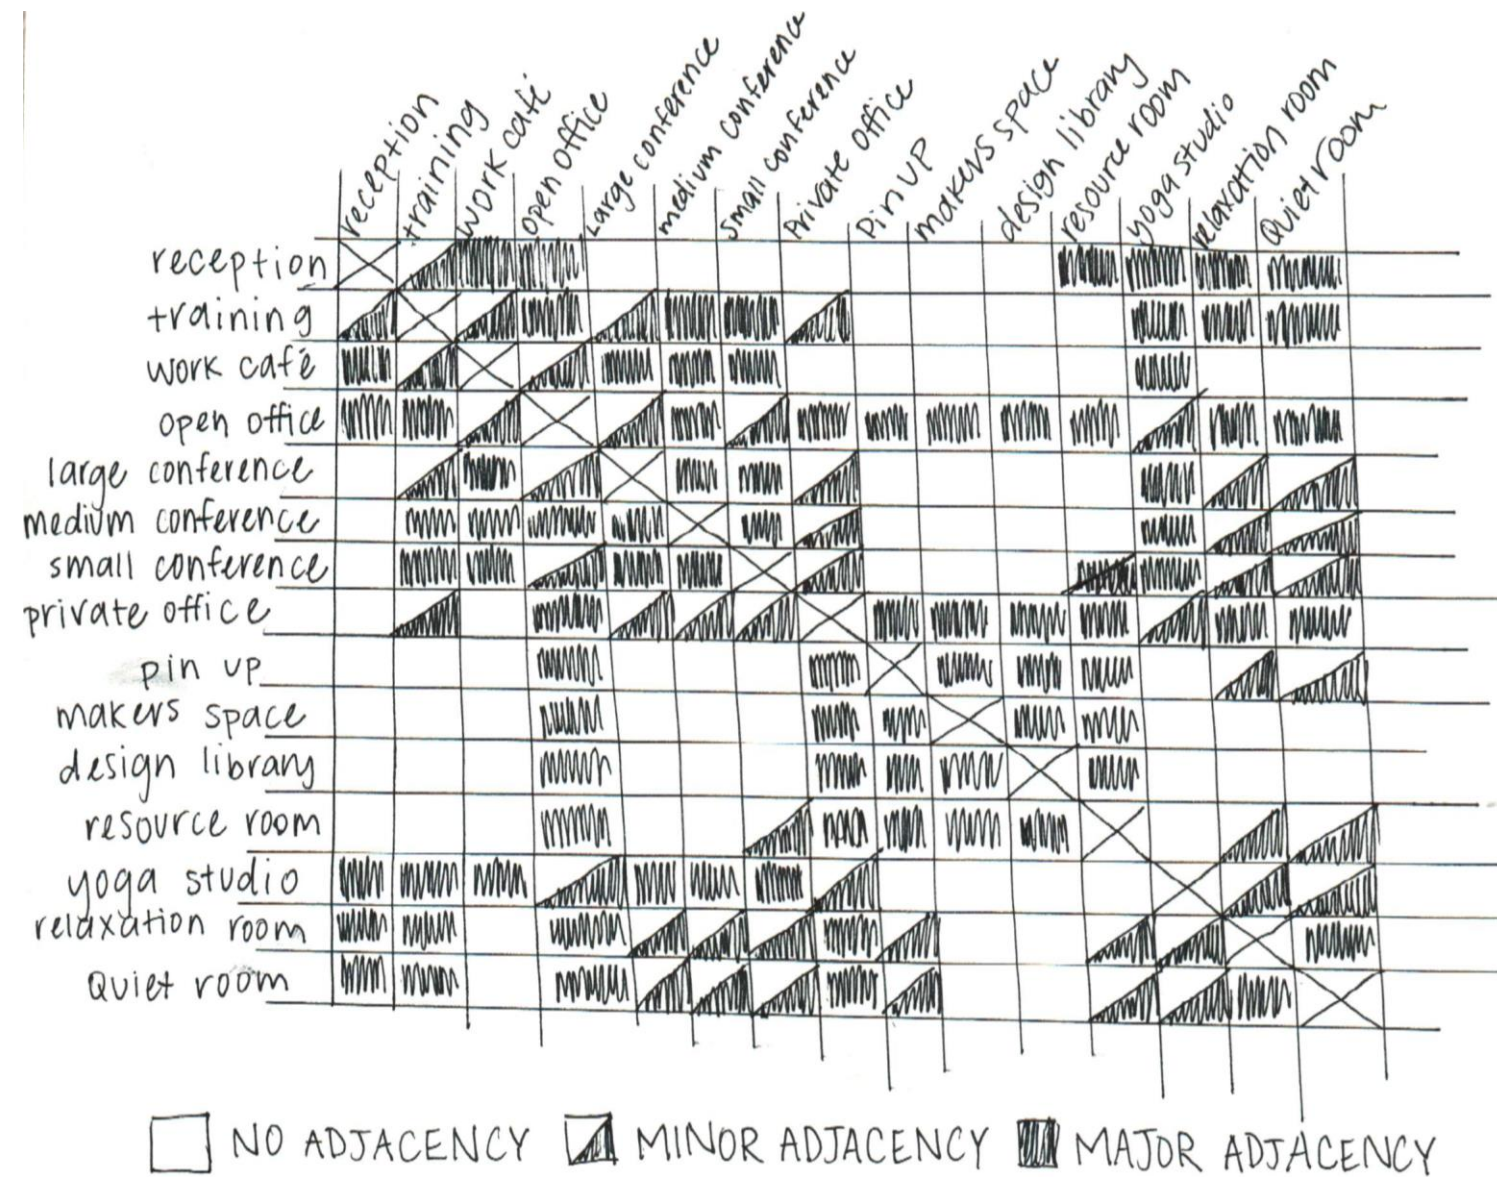 reception
training
work café
open office
Large conference
medium conference
small conference
Private office
Pin UP
makers space
design library
resource room
yoga studio
relaxation room
Quiet room
reception
training
work café
open office
large conference
medium conference
small conference
private office
pin up
makers space
design library
resource room
yoga studio
relaxation room
Quiet room
NO ADJACENCY MINOR ADJACENCY MAJOR ADJACENCY